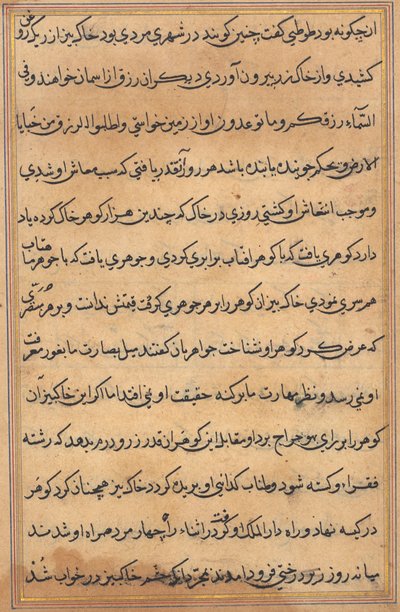 این چگونه بود طوطی گفت چنین گویند در شهری مردی بود خاک بیز از ریگ روغن
کشیدی و از خاک زر بیرون آوردی دیگران رزق از اسمان خواهند و فی
السّماء رزقکم و ما توعدون او از زمین خواستی و اطلبوا الرزق من خبایا
الارض و بحکم جوینده یابنده باشد هر روز آنقدر یافتی که سبب معاش او شدی
و موجب انتعاش او کشتی روزی در خاک که چندین هزار کوهر خاک کرده یاد
دارد کوهری یافت که با کوهر افتاب برابری کردی و جوهری یافت که با جوهر مهتاب
هم سری نمودی خاک بیز ان کوهر را بر هر جوهری که رفت قیمتش ندانست و بر هر مبصری
که عرض کرد کوهر او نشناخت جواهریان کفتند سیل بصارت ما بغور معرفت
او نمی رسد و نظر مهارت ما بر کنه حقیقت او نی افتد اما اکر این خاک بیز آن
کوهر را بر رای برد او مقابل این کوهر ان قدر زر و درم بدهد که رشته
فقر او کسسته شود و طناب کدائی او بریده کردد خاک بیز هم چنان کرد کوهر
در کیسه نهاد و راه دار الملک او گرفت در اثناء راه چهار مرد همراه او شدند
میانه روز زیر درختی فرود آمدند بمجرد آنکه چشم خاک بیز در خواب شُد